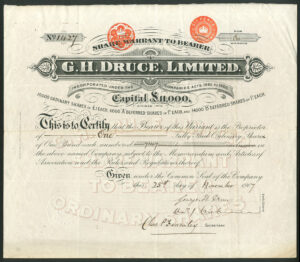 No 1427
SHARE WARRANT TO BEARER
G.H. DRUCE, LIMITED.
INCORPORATED UNDER THE COMPANIES ACTS, 1862 TO
Capital £11,000,
DIVIDED INTO
10,000 ORDINARY SHARES OF £1 EACH, 6000 'A' DEFERRED SHARES OF 1/- EACH, AND 14,000 'B' DEFERRED SHARES OF 1/- EACH.
This is to Certify that the Bearer of this Warrant is the Proprietor
of One Fully Paid Ordinary Shares
of One Pound each numbered
in the above-named Company, subject to the Memorandum, Articles of
Association and the Rules and Regulations thereof.
Given under the Common Seal of the Company
this 25th day of November 1907
SECRETARY
TO BEARER
ORDINARY